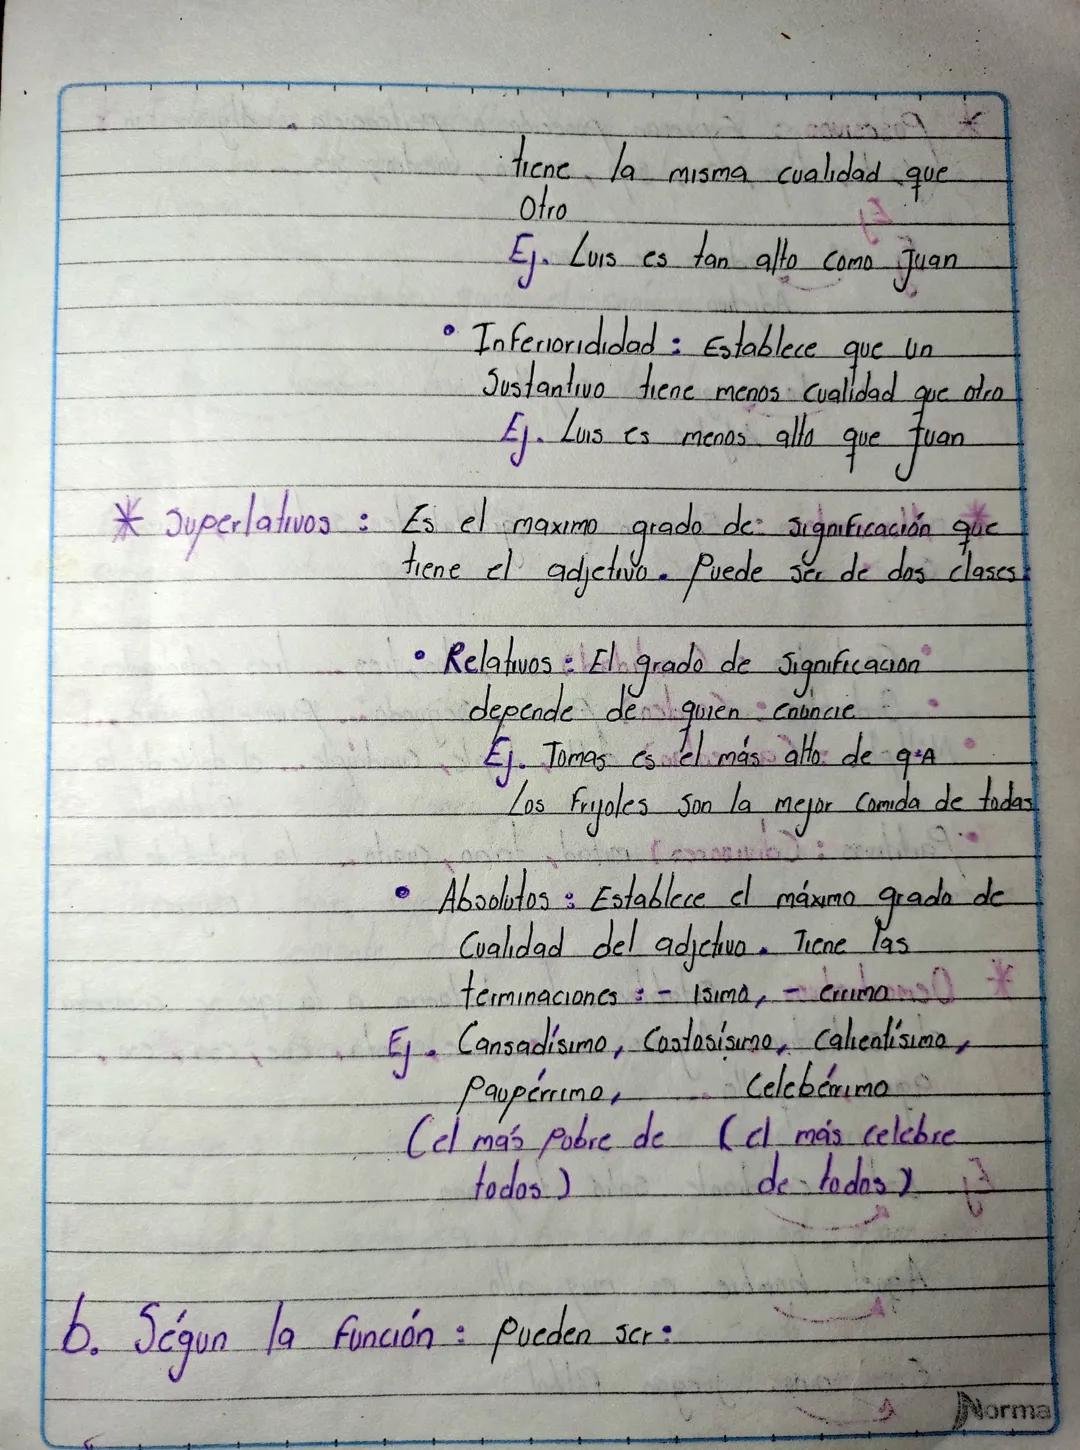 tiene la misma cualidad que
Otro
Ej. Luis es tan alto como Juan
• Inferiorididad : Establece que un
Sustantivo tiene menos cualidad que otro
Ej. Luis es menos alto que Juan
* Superlativos : Es el maximo grado de significación que
tiene el adjetivo. Puede ser de dos clases:
• Relativos : El grado de significacion
depende de quien
Ej. Tomas es el más alto de 9:A
Los Frijoles son la mejor comida de todas
• Absolutos : Establece el máximo grado de
Cualidad del adjetivo. Tiene las
terminaciones : - isimo, - errimo
Ej. Cansadísimo, Costosísimo, Calientísimo,
Paupérrimo, Celebérrimo
(el más pobre de (el más celebre
todos) de todos)
b. Ségun la función : pueden ser:
Norma